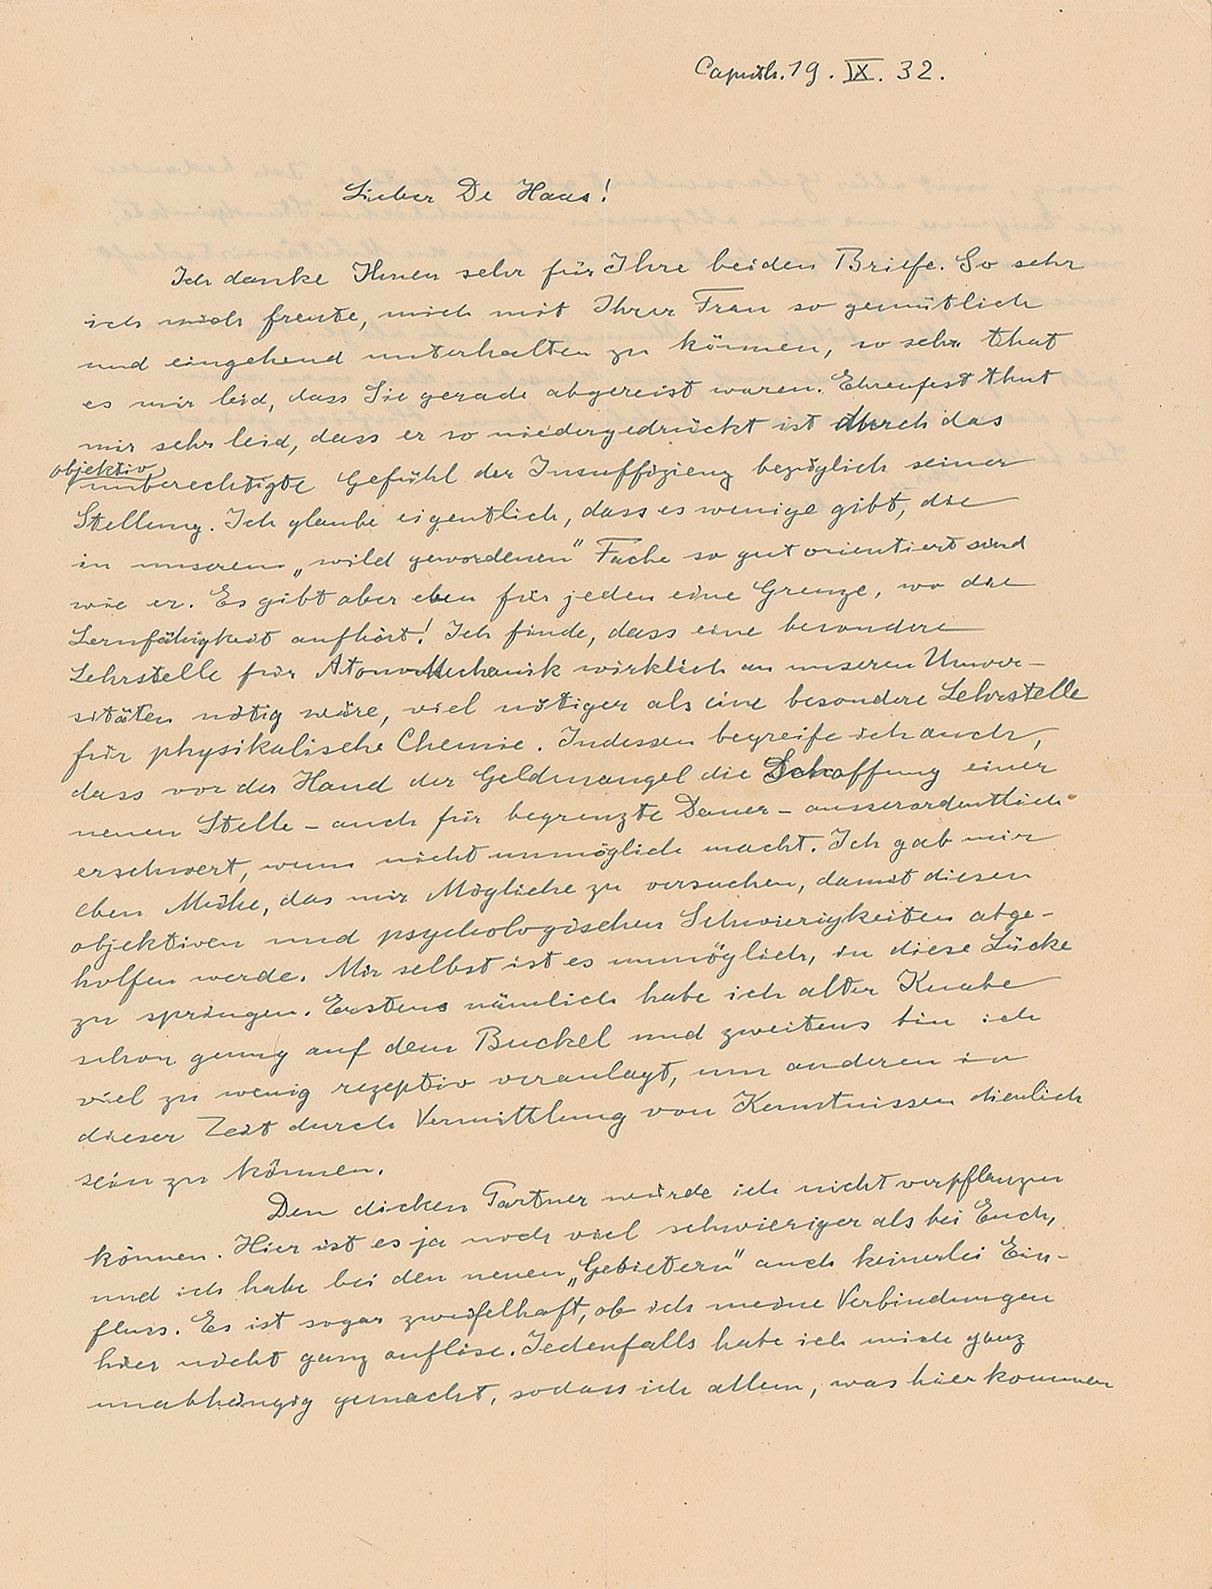 Caputh. 19. IX. 32.
Lieber De Haas!
Ich danke Ihnen sehr für Ihre beiden Briefe. So sehr
ich mich freute, mich mit Ihrer Frau so gemütlich
und eingehend unterhalten zu können, so sehr that
es mir leid, dass Sie gerade abgereist waren. Ehrenfest thut
mir sehr leid, dass er so niedergedrückt ist durch das
objektiv
unberechtigte Gefühl der Insuffizienz bezüglich seiner
Stellung. Ich glaube eigentlich, dass es wenige gibt, die
in unserem „wild gewordenen" Fache so gut orientiert sind
wie er. Es gibt aber eben für jeden eine Grenze, wo die
Lernfähigkeit aufhört! Ich finde, dass eine besondere
Lehrstelle für Atom-Mechanik wirklich an unseren Univer-
sitäten nötig wäre, viel nötiger als eine besondere Lehrstelle
für physikalische Chemie. Indessen begreife ich auch,
dass vor der Hand der Geldmangel die Schaffung einer
neuen Stelle – auch für begrenzte Dauer – ausserordentlich
erschwert, wenn nicht unmöglich macht. Ich gab mir
eben Mühe, das mir Mögliche zu versuchen, damit diesen
objektiven und psychologischen Schwierigkeiten abge-
holfen werde. Mir selbst ist es unmöglich, in diese Lücke
zu springen. Erstens nämlich habe ich alter Knabe
schon genug auf dem Buckel und zweitens bin ich
viel zu wenig rezeptiv veranlagt, um anderen in
dieser Zeit durch Vermittlung von Kenntnissen dienlich
sein zu können.
Den dicken Partner würde ich nicht verpflanzen
können. Hier ist es ja noch viel schwieriger als bei Euch,
und ich habe bei den neuen „Gebietern" auch keinerlei Ein-
fluss. Es ist sogar zweifelhaft, ob ich meine Verbindungen
hier nicht ganz auflöse. Jedenfalls habe ich mich ganz
unabhängig gemacht, sodass ich allem, was hier kommen